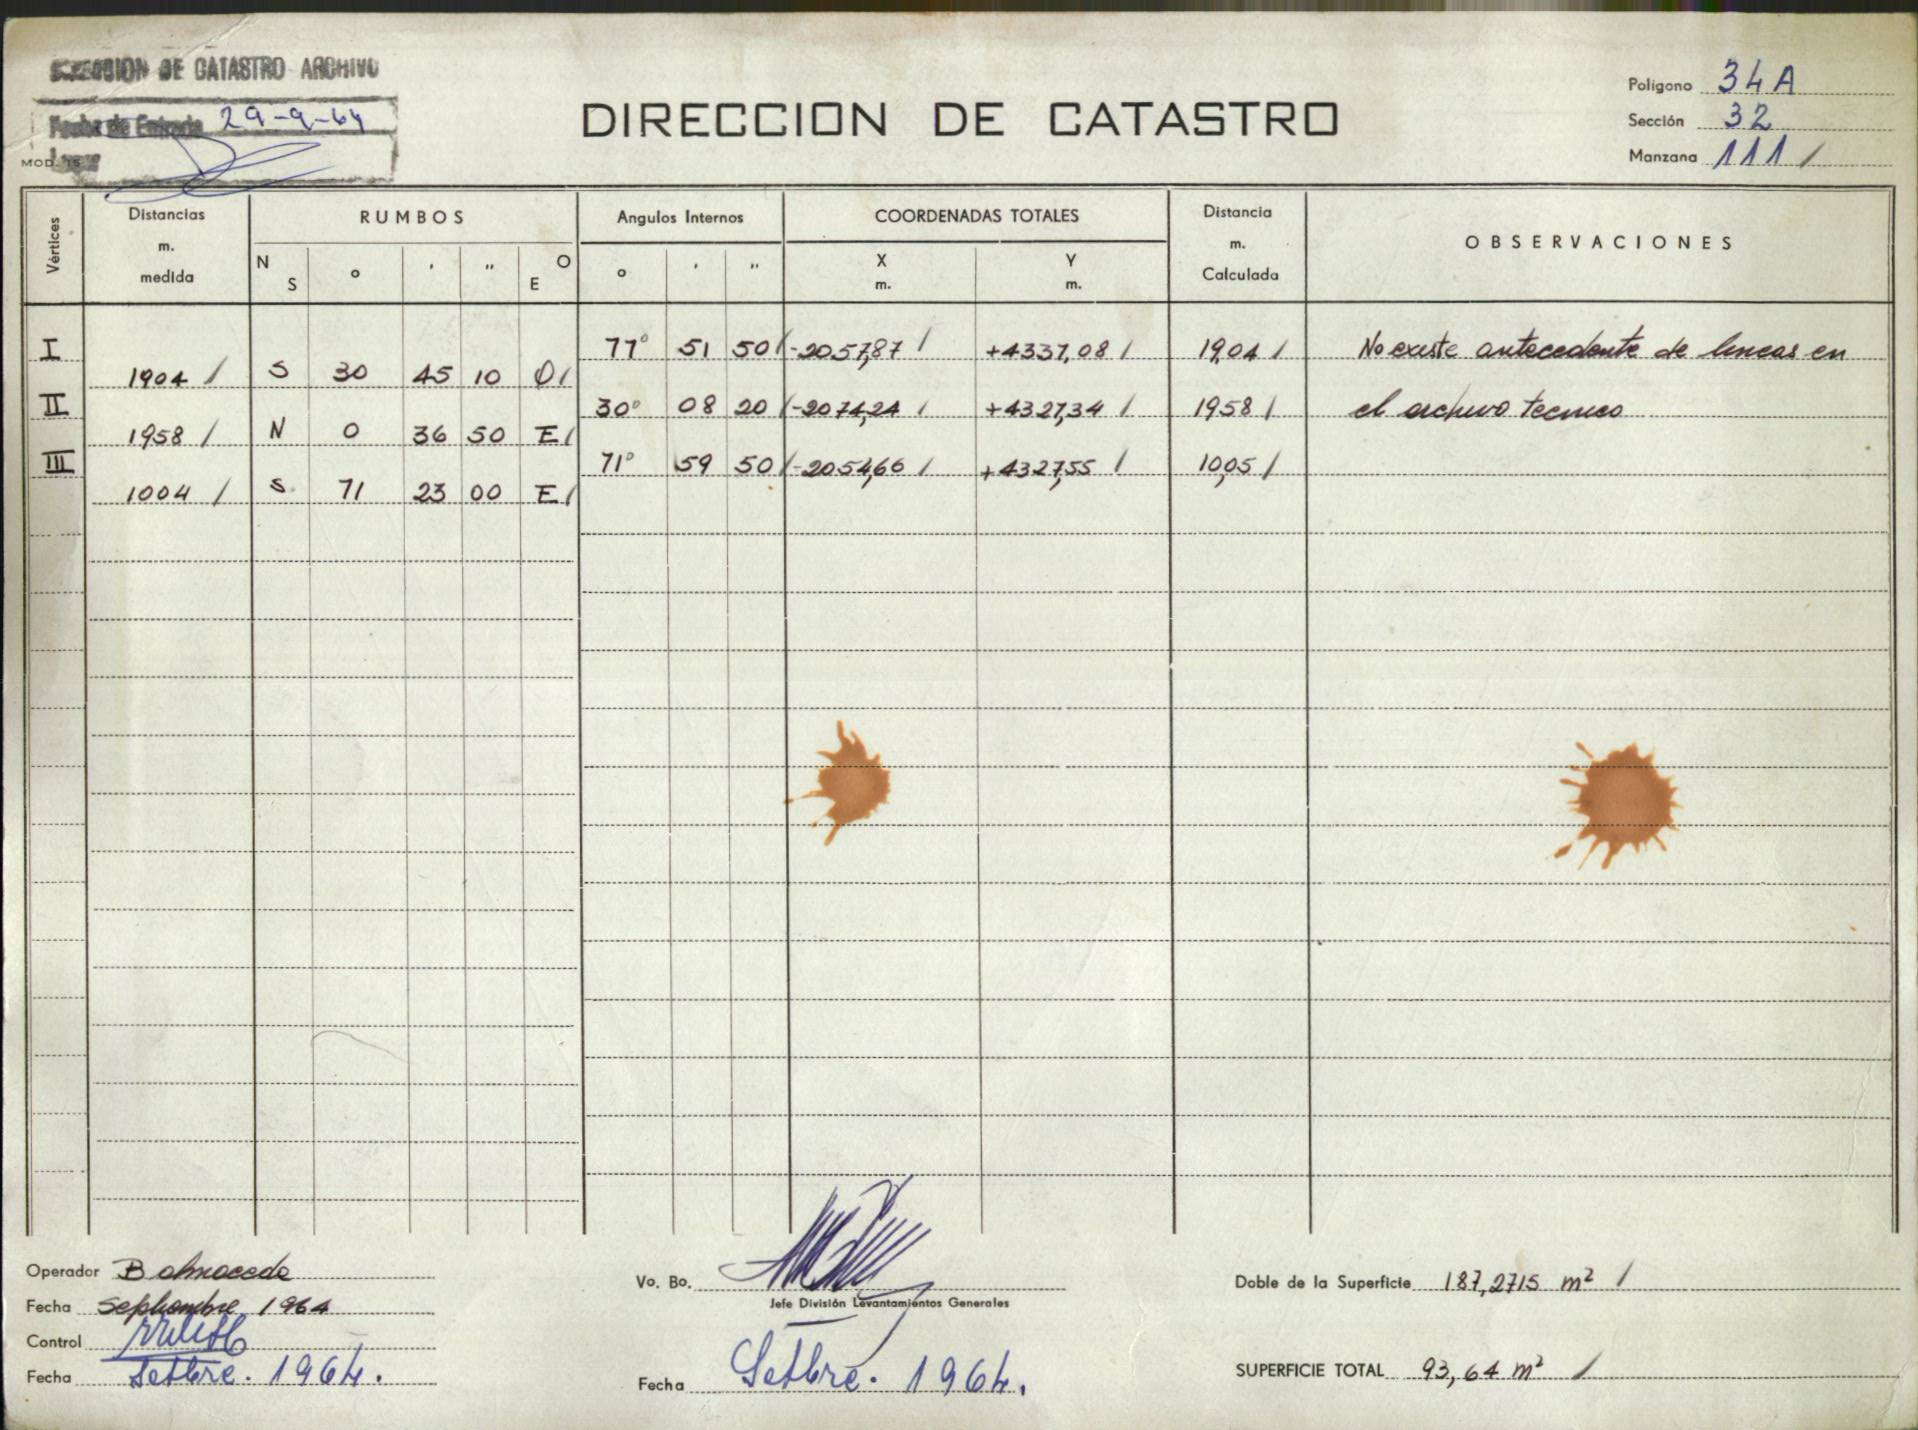 DIRECCION DE CATASTRO ARCHIVO
Fecha de Entrada 29-9-64
MOD. 15
DIRECCION DE CATASTRO
Polígono 34A
Sección 32
Manzana 111 /
Vértices
Distancias m. medida
RUMBOS
Angulos Internos
COORDENADAS TOTALES
Distancia m. Calculada
OBSERVACIONES
N S ° ' " E O
° ' "
X m.
Y m.
I 77° 51 50 / -2057,87 / +4337,08 / 19,04 / No existe antecedente de lineas en
1904 / S 30 45 10 O /
II 30° 08 20 / -2074,24 / +4327,34 / 1958 / el archivo tecnico
1958 / N 0 36 50 E /
III 71° 59 50 / -2054,66 / +4327,55 / 10,05 /
1004 / S 71 23 00 E /
Operador Balmaceda
Fecha Septiembre 1964
Control
Fecha Setbre. 1964.
Vo. Bo.
Jefe División Levantamientos Generales
Fecha Setbre. 1964.
Doble de la Superficie 187,2715 m² /
SUPERFICIE TOTAL 93,64 m² /